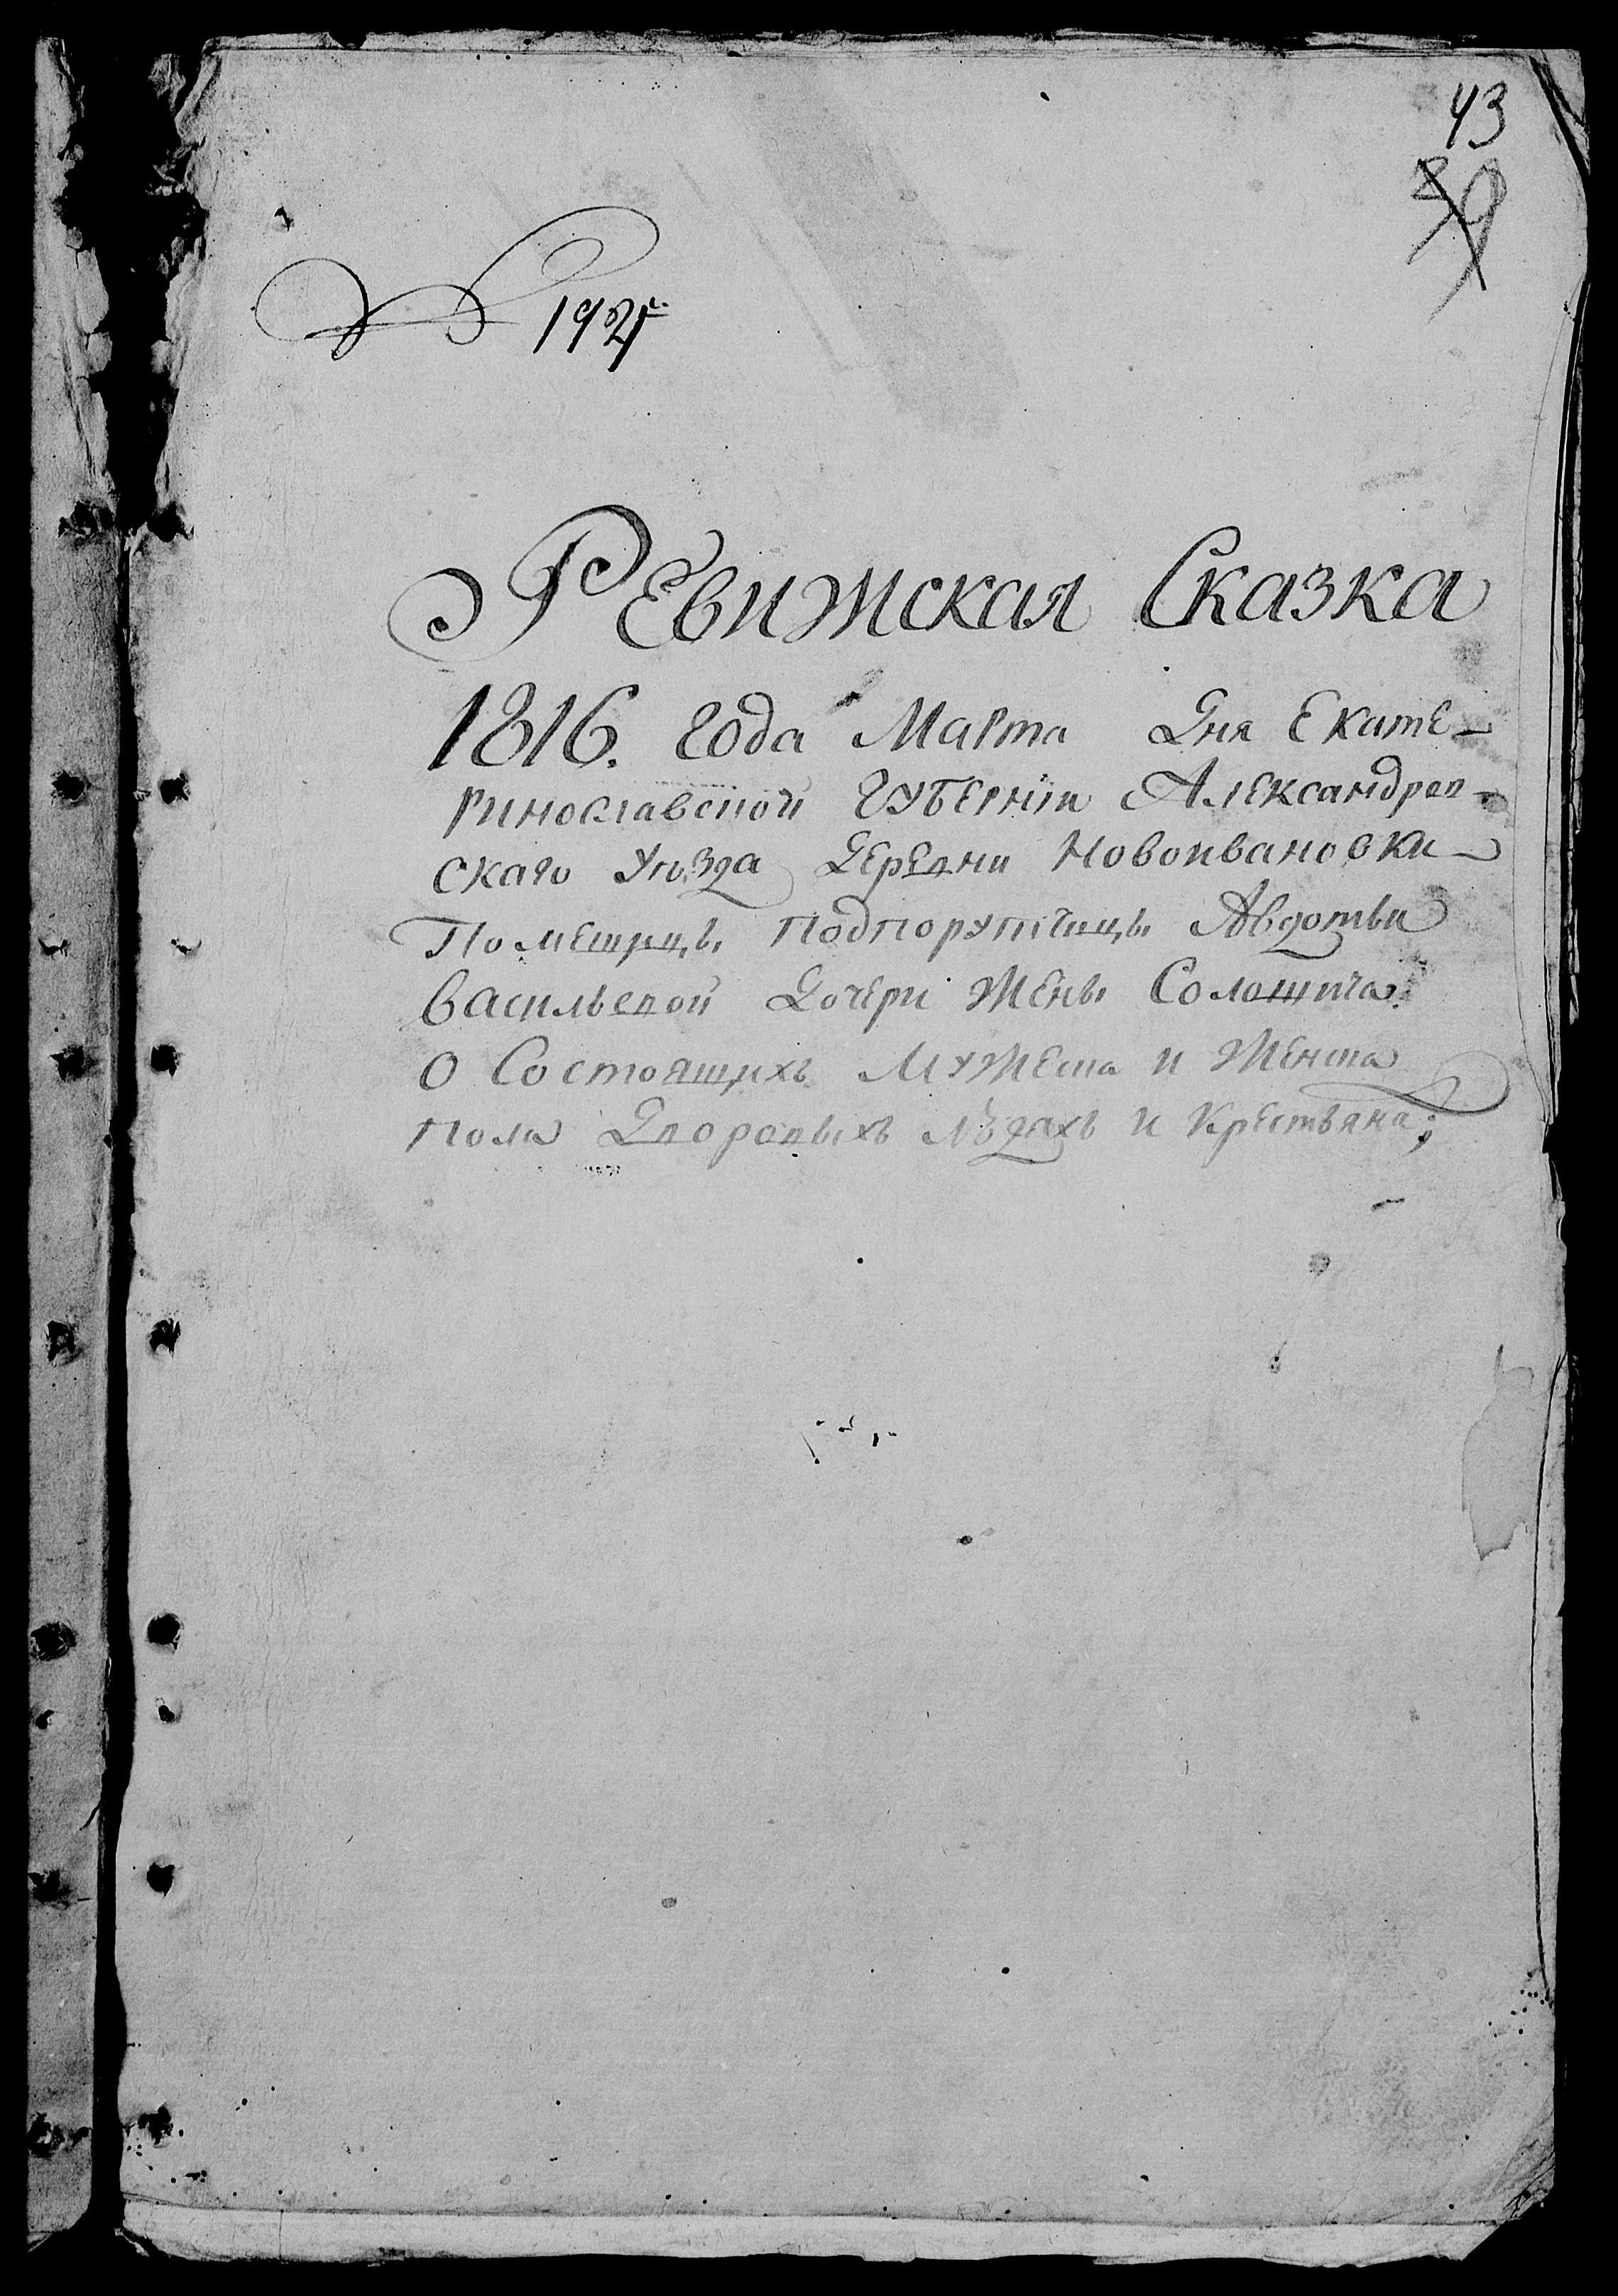 43
39
192й
Ревижская Сказка
1816. года Марта Дня Екате-
ринославской Губернiи Александров-
скаго Уѣзда Деревни Новоивановки
Помещицы Подпорутчицы Авдотьи
Васильевой Дочери Жены
О Состоящихъ Мужеска и Женска
Пола Дворовыхъ Людяхъ и Крестьяна;